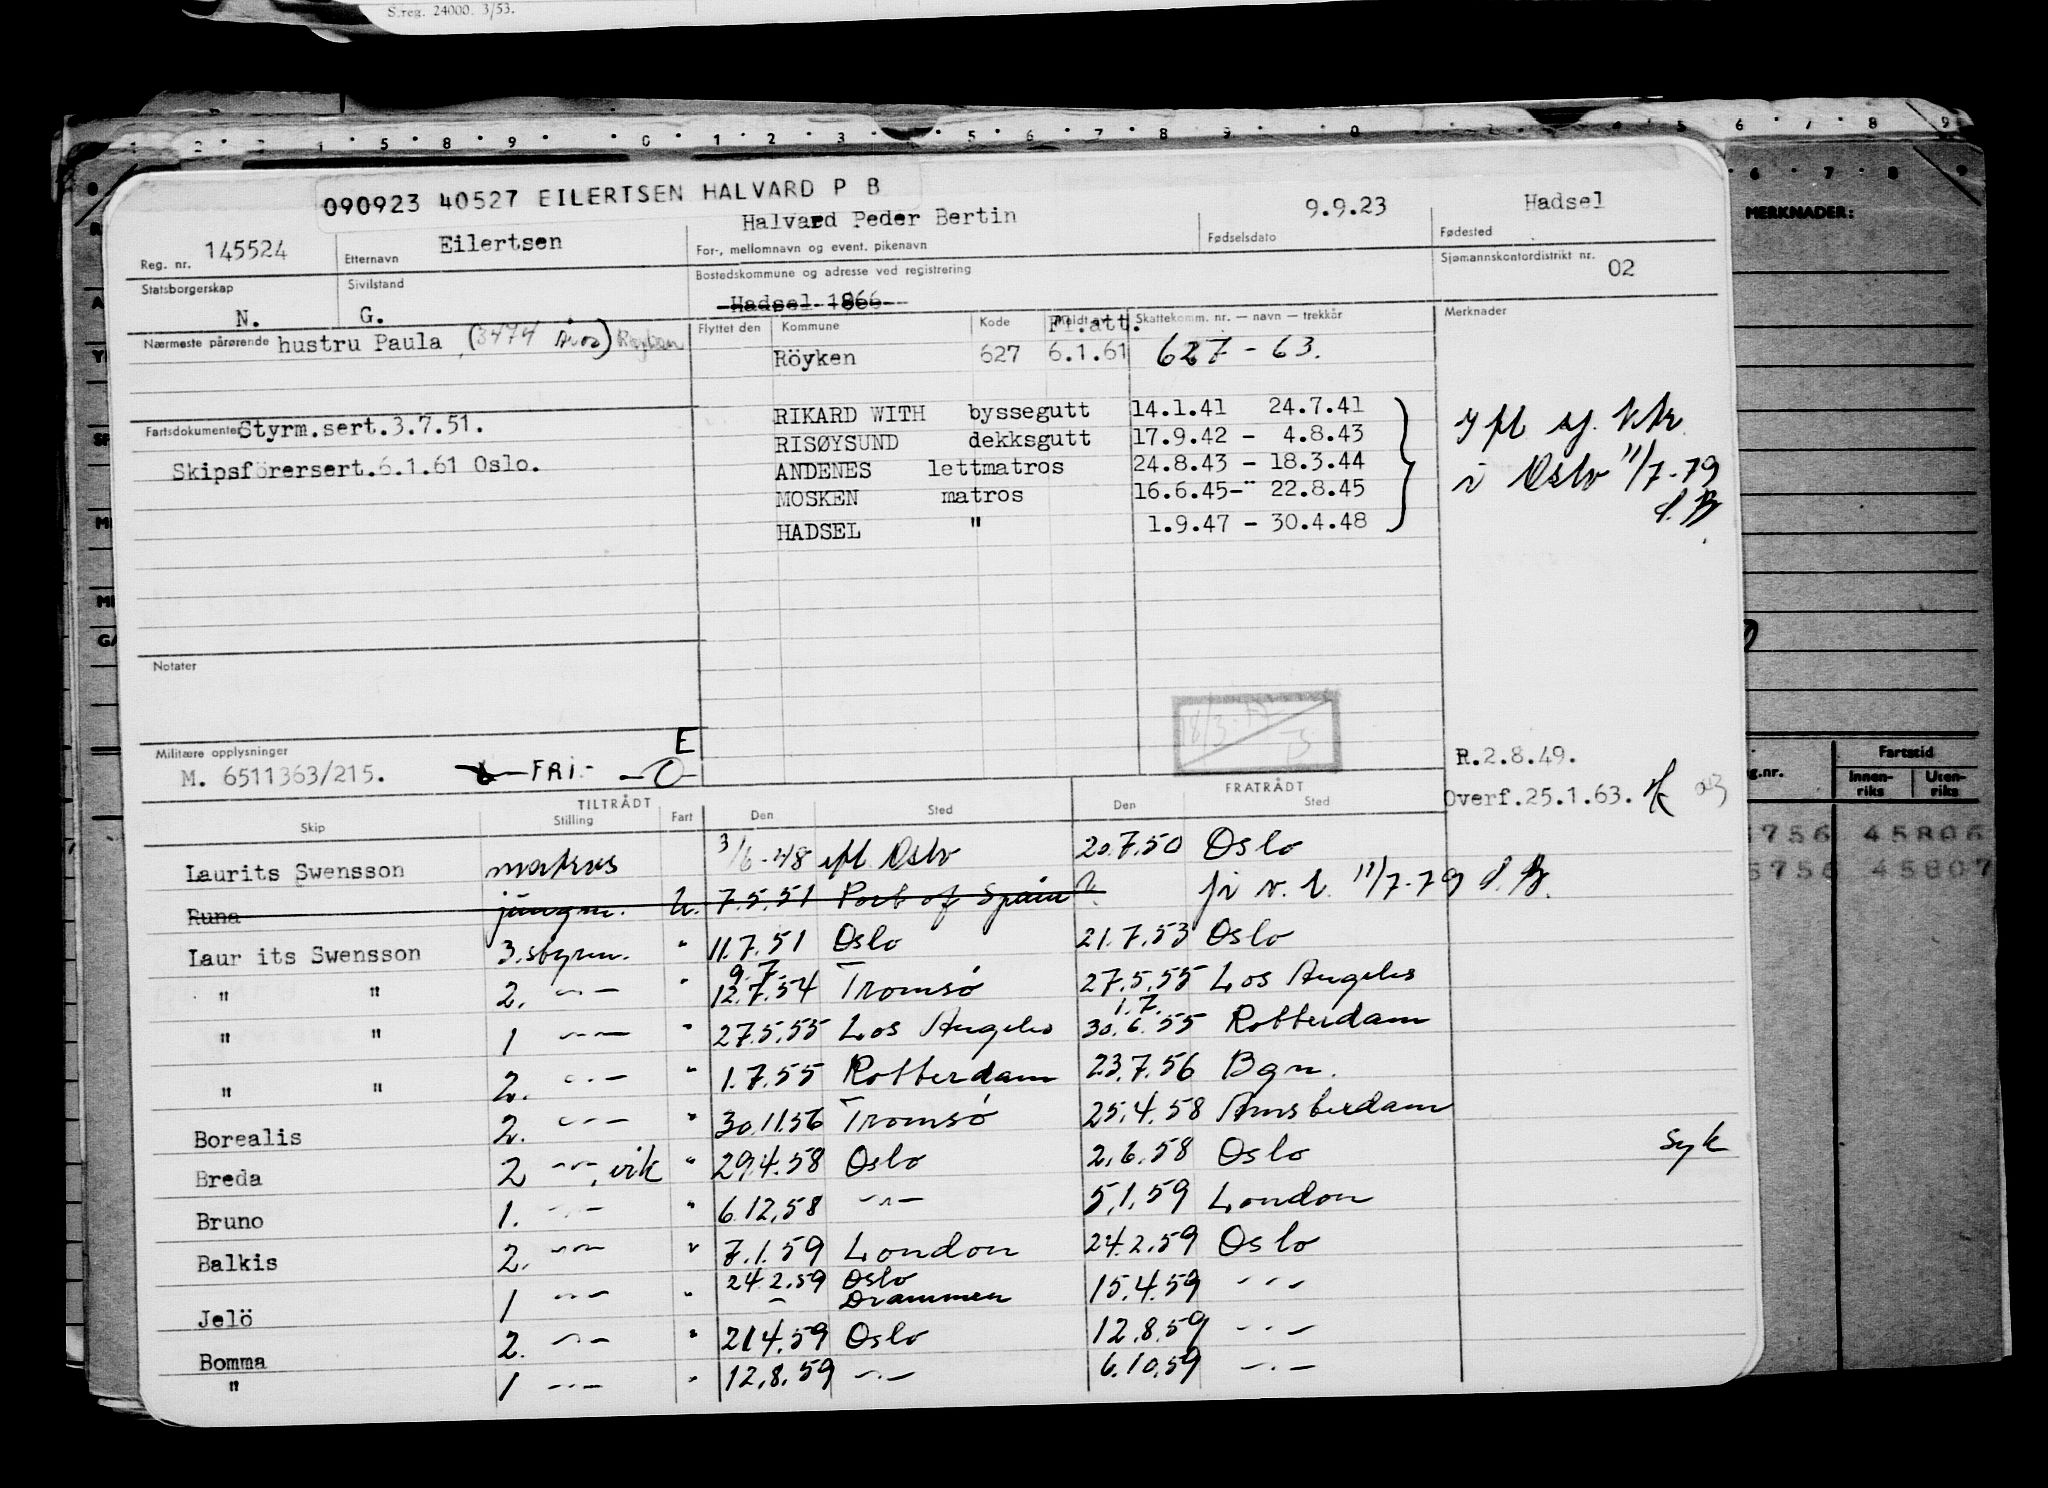 S.reg. 24000. 3/53.
090923 40527 EILERTSEN HALVARD P B
Reg. nr. 145524 Etternavn Eilertsen Halvard Peder Bertin For-, mellomnavn og event. pikenavn 9.9.23 Fødselsdato Hadsel Fødested
Statsborgerskap N. Sivilstand G. Bostedskommune og adresse ved registrering Hadsel 1866 Sjømannskontordistrikt nr. 02
Nærmeste pårørende hustru Paula (3474 Åros) Røyken
Flyttet den Kommune Kode Meldt av Fl.att. Skattekomm. nr. — navn — trekkår Merknader
Röyken 627 6.1.61 627 - 63.
Fartsdokumenter Styrm.sert.3.7.51.
Skipsförersert.6.1.61 Oslo.
RIKARD WITH byssegutt 14.1.41 24.7.41
RISØYSUND dekksgutt 17.9.42 - 4.8.43
ANDENES lettmatros 24.8.43 - 18.3.44
MOSKEN matros 16.6.45-" 22.8.45
HADSEL " 1.9.47 - 30.4.48
Ifl sj. ktr
i Oslo 11/7-79
Notater
Militære opplysninger
M. 6511363/215. FRI.- O E
R.2.8.49.
Overf.25.1.63.
TILTRÅDT FRATRÅDT
Skip Stilling Fart Den Sted Den Sted
Laurits Swensson matros 3/6-48 ifl Oslo 20.7.50 Oslo
Runa jungm. U. 7.5.51 Port of Spain 11/7-79
Laur its Swensson 3.styrm. " 11.7.51 Oslo 21.7.53 Oslo
" " 2. -"- " 9.7 12.7.54 Tromsö 27.5.55 Los Angeles
" " 1 -"- " 27.5.55 Los Angeles 1.7. 30.6.55 Rotterdam
" " 2. -"- " 1.7.55 Rotterdam 23.7.56 Bgn.
Borealis 2. -"- " 30.11.56 Tromsö 25.4.58 Amsterdam
Breda 2 -"-, vik " 29.4.58 Oslo 2.6.58 Oslo Syk
Bruno 1. -"- " 6.12.58 -"- 5.1.59 London
Balkis 2. -"- " 7.1.59 London 24.2.59 Oslo
Jelö 1 -"- " 24.2.59 Oslo Drammen 15.4.59 -"-
Bomma 2. -"- " 21.4.59 Oslo 12.8.59 -"-
" 1 -"- " 12.8.59 -"- 6.10.59 -"-
MERKNADER:
Fartstid
Innen-riks Uten-riks
5756 45806
5756 45807